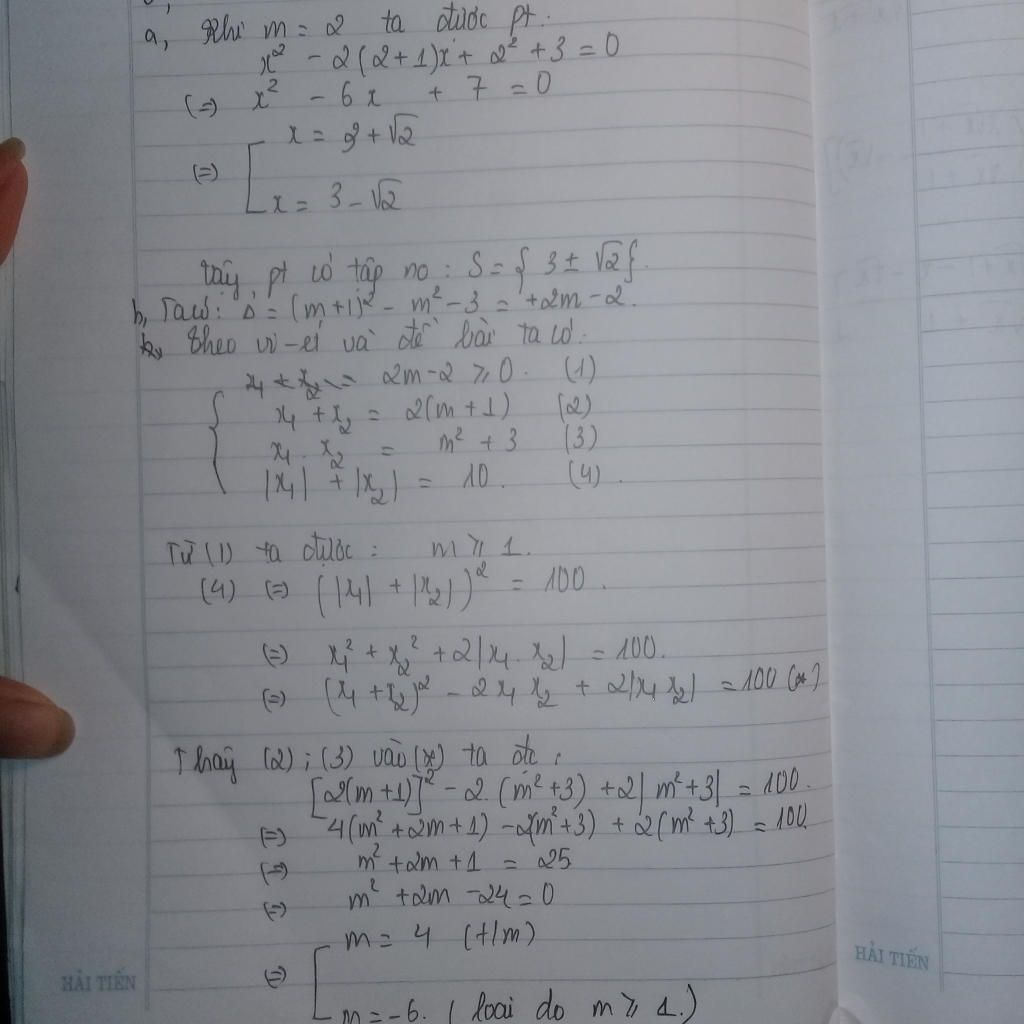 a, Khi m = 2 ta được pt:
x² - 2(2+1)x + 2² + 3 = 0
(=) x² - 6x + 7 = 0
x = 3 + √2
(=)
x = 3 - √2
Vậy pt có tập no : S = { 3 ± √2 }.
b, Ta có: Δ' = (m+1)² - m² - 3 = +2m - 2.
Theo vi-ét và đề bài ta có:
2m - 2 ≥ 0. (1)
x₁ + x₂ = 2(m+1) (2)
x₁ . x₂ = m² + 3 (3)
|x₁| + |x₂| = 10. (4).
Từ (1) ta được : m ≥ 1.
(4) (=) (|x₁| + |x₂|)² = 100.
(=) x₁² + x₂² + 2|x₁. x₂| = 100.
(=) (x₁ + x₂)² - 2x₁ x₂ + 2|x₁ x₂| = 100 (*)
Thay (2) ; (3) vào (*) ta đc :
[2(m+1)]² - 2. (m²+3) + 2|m²+3| = 100.
(=) 4(m² + 2m + 1) - 2(m²+3) + 2(m²+3) = 100.
(=) m² + 2m + 1 = 25
(=) m² + 2m - 24 = 0
m = 4 (t/m)
(=)
m = -6. ( loại do m ≥ 1.)
HẢI TIẾN
HẢI TIẾN